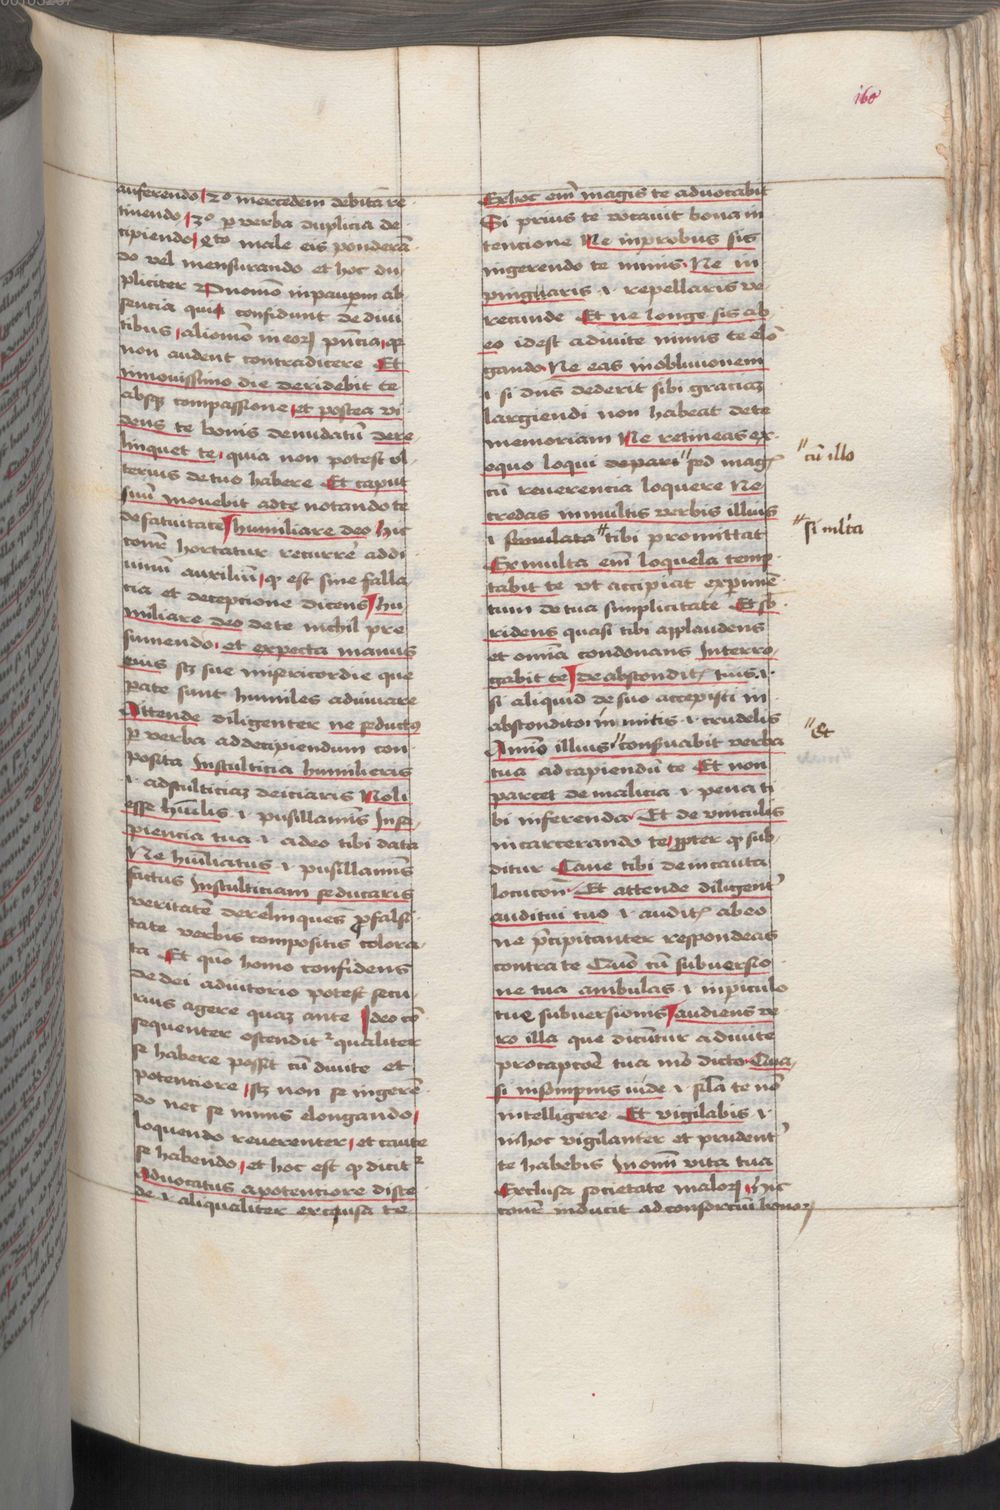 160
auferendo 2º mercedem debitā re
tinendo 3º ꝑ verba duplicia de
cipiendo qͣto male eis ponderā
do vel mensurando et hoc du
pliciter Pͥmomō in pauꝑum ab
sencia quia confidunt de diui
tibus aliomō in eorꝫ pn̄cia qꝛ
non audent contradicere Et
innouissimo die deridebit te
absqꝫ compassione et postea vi
dens te bonis denudatū dere
linquet te quia non potest vl
terius de tuo habere Et caput
suū mouebit ad te notando te
de fatuitate humiliare deo hic
conn̄r hortatur recurrē ad di
uinū auxiliū qꝛ est sine falla
cia et decepcione dicens hu
miliare deo de te nichil pre
sumendo et expecta manus
eius scꝫ sue misericordie que
ꝑate sunt humiles adiuuare
Attende diligenter ne seductꝰ
ꝑ verba ad decipiendum con
posita Instulticia humilieris
.i. ad stulticiaꝫ deiciaris Noli
esse hūilis .i. pusillanīs In sa
piencia tua .i. a deo tibi data
Ne hūiliatus .i. pusillanīs
factus Instulticiam seducaris
veritatē derelinquens ꝓ falsi
tate verbis compositis colora
ta Et quō homo confidens
de dei adiutorio potest secu
rius agere quaꝫ ante Ideo cō
sequenter ostenditᷣ qualiter
se habere possit cū diuite et
potenciore scꝫ non se ingerē
do nec se nimis elongando
loquendo reuerenter et caute
se habendo et hoc est qđ dicitᷣ
Aduocatus a potenciore disce
de .i. aliqualiter excusa te
Ex hoc em̄ magis te aduocabit
Si prius te vocauit bona in
tencione Ne inprobus sis
ingerendo te nimis Ne in
pingaris .i. repellaris ve
recunde Et ne longe sis ab
eo idest a diuite nimis te elō
gando Ne eas in obliuionem
.i. si dn̄s dederit sibi graciaꝫ
largiendi non habeat de te
memoriam Ne retineas ex
equo loqui de pari " sed magꝭ
" cū illo
cū reuerencia loquere Ne
credas in multis verbis illius
.i. " tibi promittat
" si ml̄ta
Ex multa em̄ loquela temp
tabit te vt accipiat exꝑimē
tum de tua simplicitate Et sb
ridens quasi tibi applaudens
et omīa condonans Interro
gabit te de absconditꝭ tuis .i.
si aliquid de suo accepisti in
abscondito inmitis .i. crudelis
Animꝰ illius " conseruabit verba
" Et
tua ad capiendū te Et non
parcet de malicia .i. pena ti
bi inferenda Et de vinculis
incarcerando te ꝓpter qđ sub
ditur Caue tibi de incauta
locucōe Et attende diligentᷣ
auditui tuo .i. auditꝭ ab eo
ne p̄cipitanter respondeas
contra te Quō cū subuersio
ne tua ambulas .i. in ꝑiculo
tue subuersionis audiens ve
ro illa que dicuntur a diuite
pro capcōe tua mō dicto Qua
si in sompnis vide .i. sīla te nō
intelligere Et vigilabis .i.
in hoc vigilanter et prudentᷣ
te habebis In omī vita tua
Exclusa societate malorꝫ hic
conn̄r inducit ad consorciū bonoꝝ